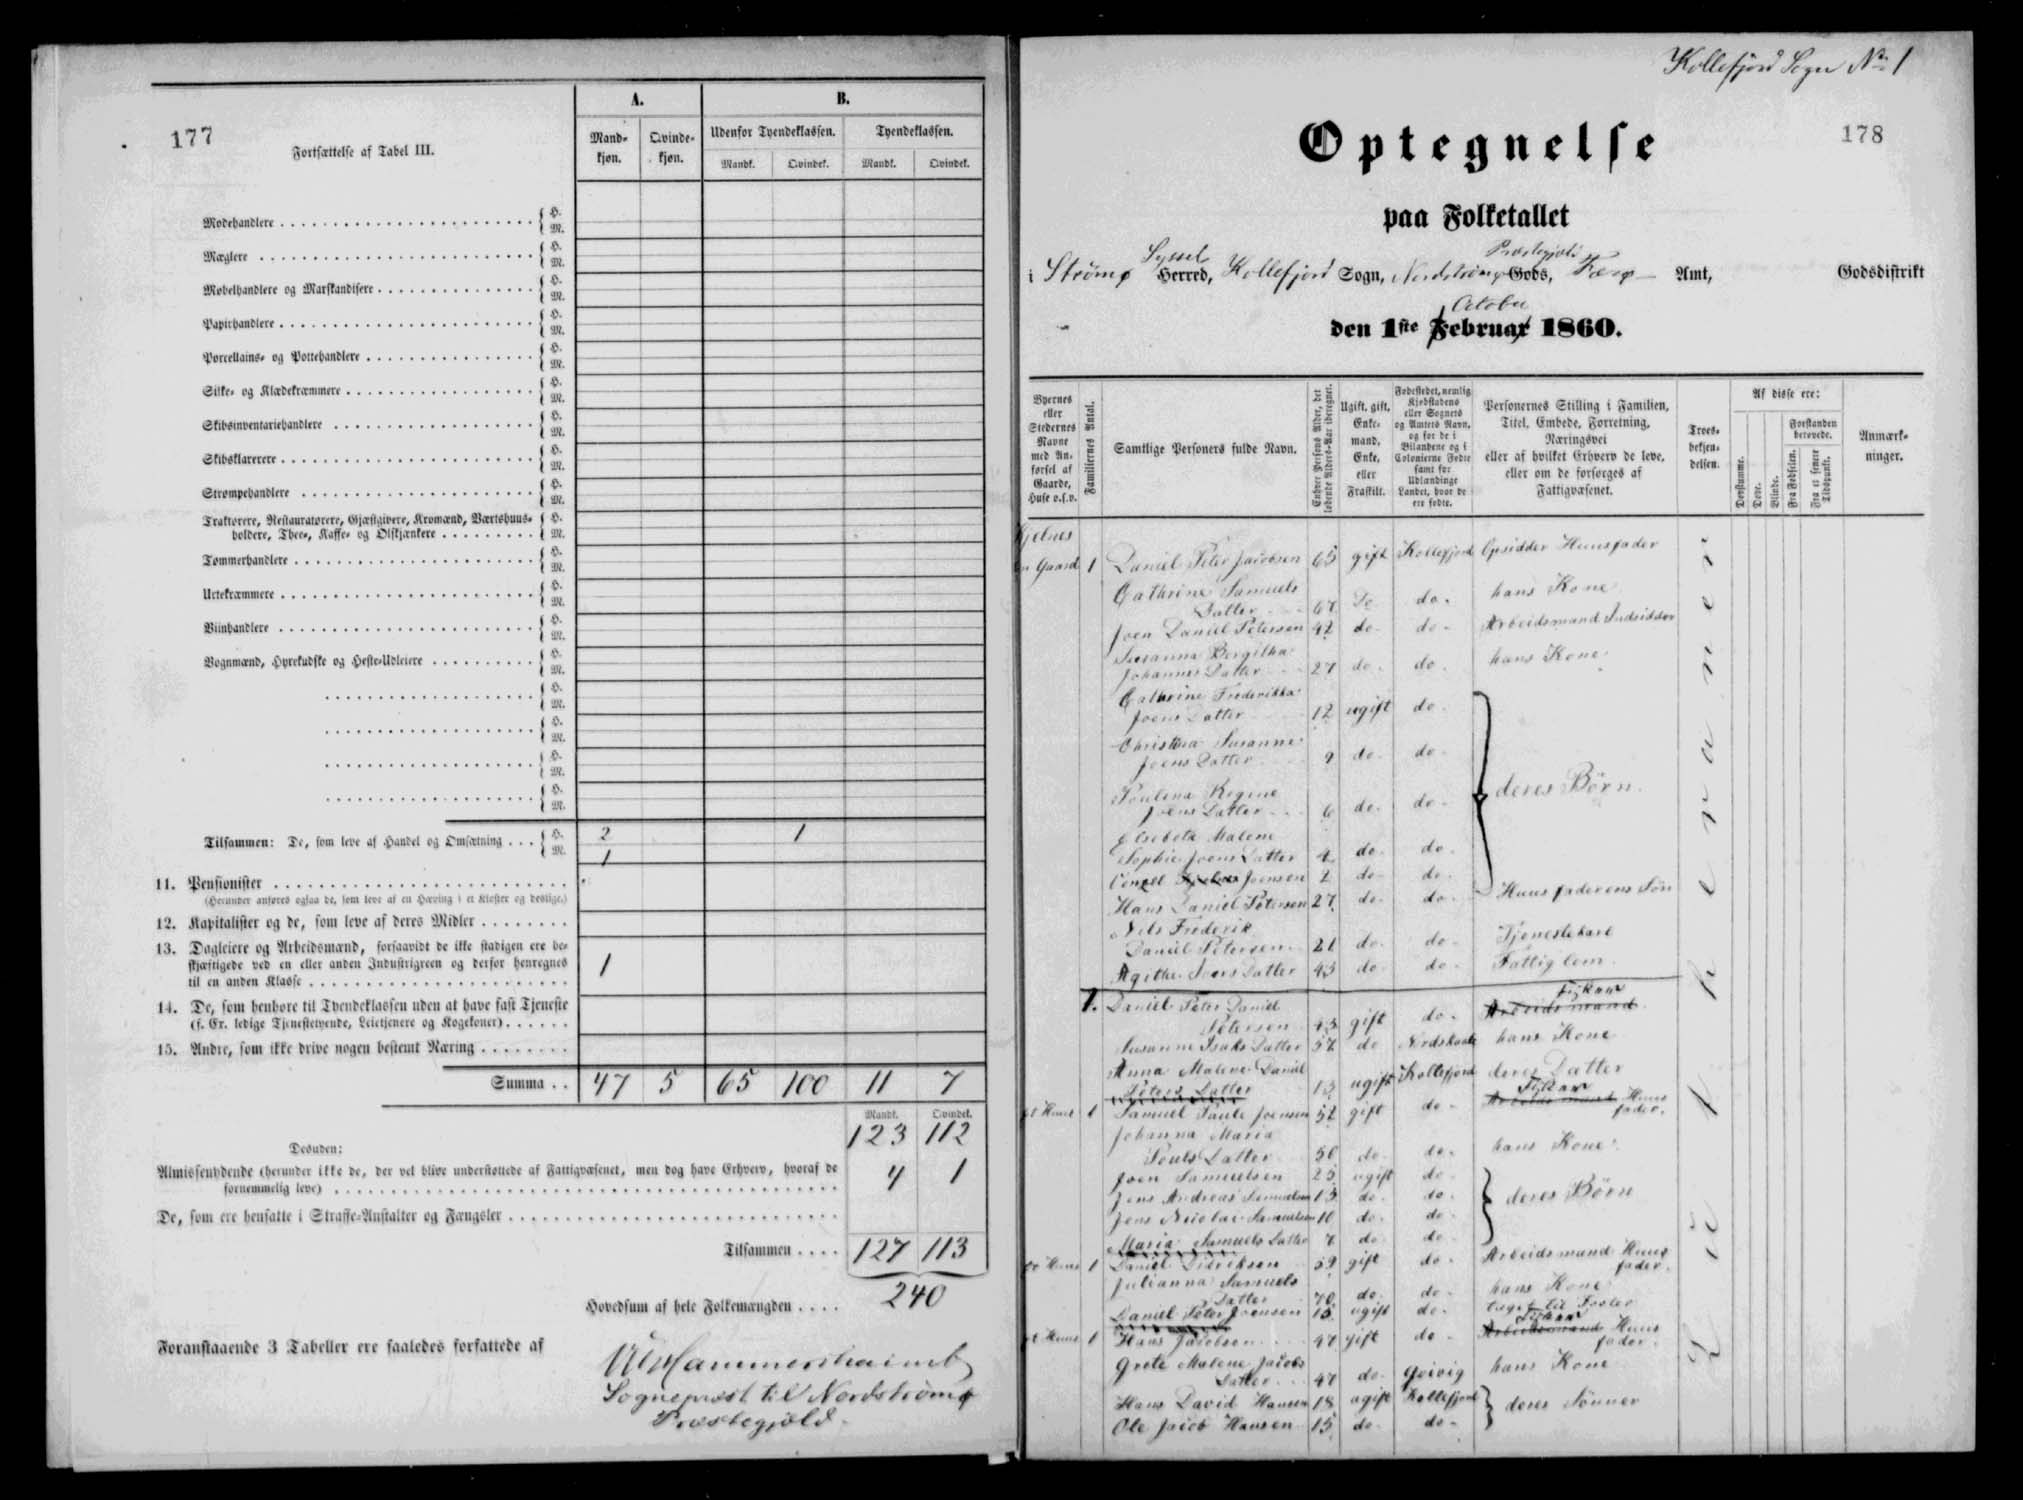 177
Fortsættelse af Tabel III.
A.
B.
Mand-
kjøn.
Qvinde-
kjøn.
Udenfor Tyendeklassen.
Tyendeklassen.
Mandk.
Qvindek.
Mandk.
Qvindek.
Modehandlere { H. M.
Mæglere { H. M.
Møbelhandlere og Marskandisere { H. M.
Papirhandlere { H. M.
Porcellains- og Pottehandlere { H. M.
Silke- og Klædekræmmere { H. M.
Skibsinventariehandlere { H. M.
Skibsklarerere { H. M.
Strømpehandlere { H. M.
Traktører, Restauratører, Gjæstgivere, Kromænd, Værtshuus-
holdere, Thee-, Kaffe- og Ølskjænkere { H. M.
Tømmerhandlere { H. M.
Urtekræmmere { H. M.
Viinhandlere { H. M.
Vognmænd, Hyrekudske og Heste-Udleiere { H. M.
{ H. M.
{ H. M.
{ H. M.
{ H. M.
Tilsammen: De, som leve af Handel og Omsætning { H. 2 1
M. 1
11. Pensionister
(Herunder anføres ogsaa de, som leve af en Hæving i et Kloster og deslige.)
12. Kapitalister og de, som leve af deres Midler
13. Dagleiere og Arbeidsmænd, forsaavidt de ikke stadigen ere be-
skjæftigede ved en eller anden Industrigreen og derfor henregnes
til en anden Klasse 1
14. De, som henhøre til Tyendeklassen uden at have fast Tjeneste
(f. Ex. ledige Tjenestetyende, Leietjenere og Kogekoner)
15. Andre, som ikke drive nogen bestemt Næring
Summa 47 5 65 100 11 7
Mandk. Qvindek.
123 112
Desuden:
Almissenydende (herunder ikke de, der vel blive understøttede af Fattigvæsenet, men dog have Erhverv, hvoraf de
fornemmelig leve) 4 1
De, som ere hensatte i Straffe-Anstalter og Fængsler
Tilsammen 127 113
Hovedsum af hele Folkemængden 240
Foranstaaende 3 Tabeller ere saaledes forfattede af
Hammershaimb
Sognepræst til Nordstrømø
Præstegjæld.
Kollefjord Sogn No 1
178
Optegnelse
paa Folketallet
Syssel
Præstegjæld
i Strømø Herred, Kollefjord Sogn, Nordstrømø Gods, Færø Amt, Godsdistrikt
October
den 1ste Februar 1860.
Byernes
eller
Stedernes
Navne
med An-
førsel af
Gaarde,
Huse o.s.v.
Familiernes Antal.
Samtlige Personers fulde Navn.
Enhver Persons Alder, det
løbende Alders-Aar iberegnet.
Ugift, gift,
Enke-
mand,
Enke,
eller
Fraskilt.
Fødestedet, nemlig
Kjøbstadens
eller Sognets
og Amtets Navn,
og for de i
Bilandene og i
Colonierne Fødte
samt for
Udlændinge
Landet, hvor de
ere fødte.
Personernes Stilling i Familien,
Titel, Embede, Forretning,
Næringsvei
eller af hvilket Erhverv de leve,
eller om de forsørges af
Fattigvæsenet.
Troes-
bekjen-
delsen.
Af disse ere:
Døvstumme.
Døve.
Blinde.
Forstanden
berøvede.
Fra Fødselen.
Fra et senere
Tidspunkt.
Anmærk-
ninger.
Kjelnes
en Gaard 1 Daniel Peter Jacobsen 65 gift Kollefjord Opsidder Huusfader
Cathrine Samuels
Datter 67 Do do. hans Kone
Joen Daniel Petersen 42 do. do. Arbeidsmand Indsidder
Susanna Bergitha
Johannes Datter 27 do. do. hans Kone
Cathrine Frederikka
Joens Datter 12 ugift do.
Christina Susanne
Joens Datter 9 do. do.
Poulina Regine
Joens Datter 6 do. do. deres Børn.
Elsebeta Malene
Sophie Joens Datter 4 do. do.
Joensen 2 do. do.
Hans Daniel Petersen 27 do. do. Huusfaderens Søn
Nils Frederik
Daniel Petersen 21 do. do. Tjenestekarl
Agithe Joens Datter 43 do. do. Fattiglem.
1. Daniel Peter Daniel
Petersen 43 gift do. Arbeidsmand.
Susanne Isaks Datter 52 do Nordskaale hans Kone
Anna Malene Daniel
Peters Datter 13 ugift Kollefjord deres Datter
et Huus 1 Samuel Poule Joensen 52 gift do. Arbeidsmand Huus
fader.
Johanna Maria
Pouls Datter 50 do. do. hans Kone
Joen Samuelsen 25 ugift do.
Jens Andreas Samuelsen 13 do. do. deres Børn
Jens Nicolai Samuelsen 10 do. do.
Maria Samuels Datter 7 do. do.
et Huus 1 Daniel Didriksen 59 gift do. Arbeidsmand Huus
fader.
Julianna Samuels
Datter 70 do. do. hans Kone
Daniel Peter Joensen 15 ugift do. taget til Foster
et Huus 1 Hans Jacobsen 47 gift do. Arbeidsmand Huus
fader.
Grete Malene Jacobs
Datter 47 do. Qvivig hans Kone
Hans David Hansen 18 ugift Kollefjord deres Sønner
Ole Jacob Hansen 15 do. do.
Lutheraner